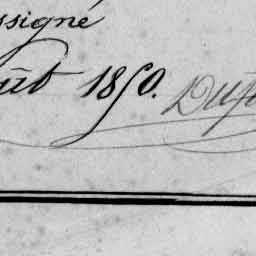 ssigné
ût 1850. Duf